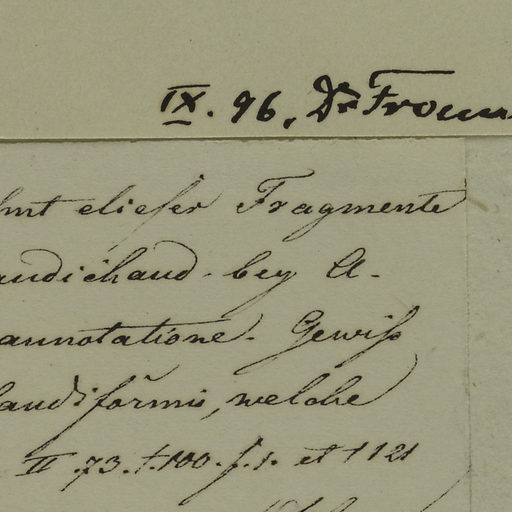 IX. 96, Dr From
hnt dieser Fragmente
audichaud. bey A.
annotatione. Gewiß
landiformis, welche
II. 73. t. 100. f. 1. et t 121